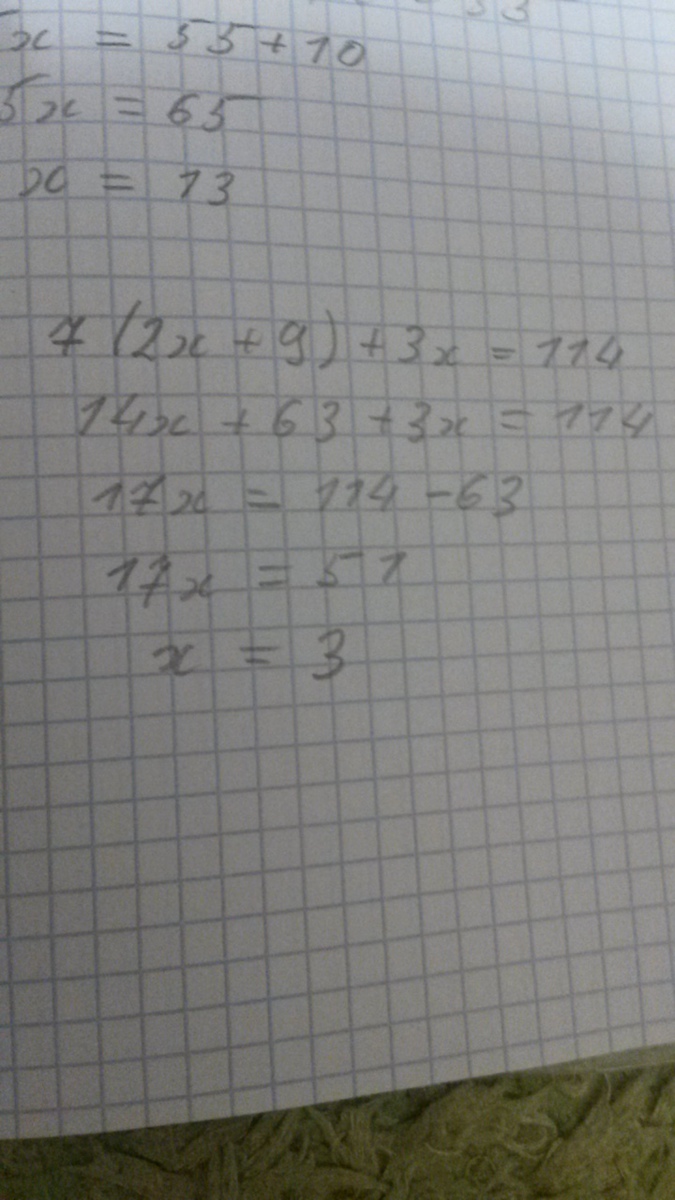 5x = 55 + 10
5x = 65
x = 13
7(2x + 9) + 3x = 114
14x + 63 + 3x = 114
17x = 114 - 63
17x = 51
x = 3